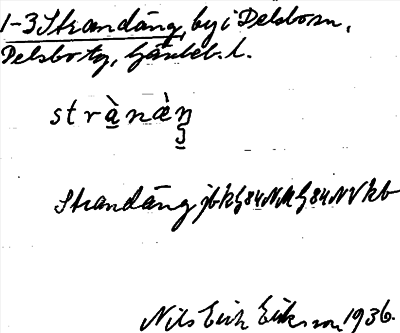 1-3 Strandäng, by i Delsbo sn,
Delsbo tg, Gävleb. l.
strànæ̀n
Strandäng jbkG84NMG84NVkb
Nils Erik Eriksson 1936.